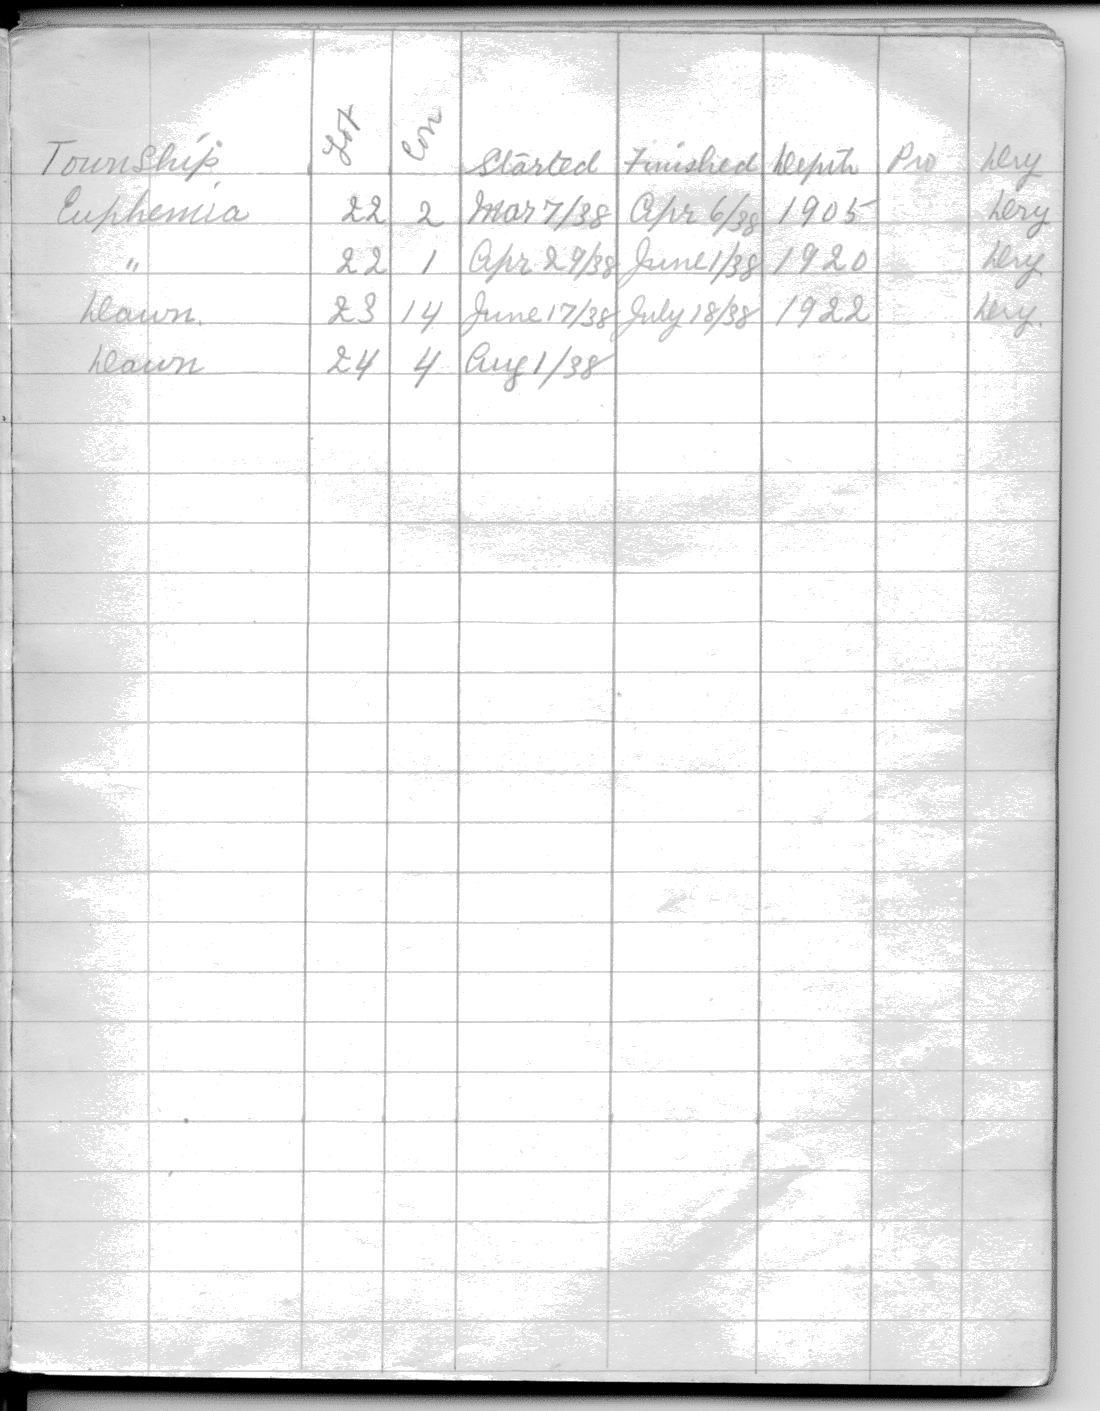 Township Lot Con Started Finished Depth Pro Dry
Euphemia 22 2 Mar 7/38 Apr 6/38 1905 Dry
" 22 1 Apr 29/38 June 1/38 1920 Dry
Dawn. 23 14 June 17/38 July 18/38 1922 Dry.
Dawn 24 4 Aug 1/38